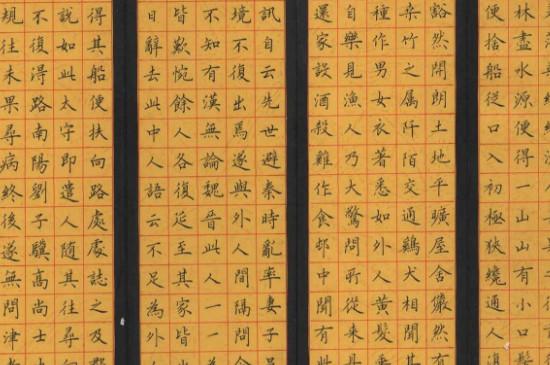 林盡水源便得一山山有小口髣
便捨船從口入初極狹纔通人
豁然開朗土地平曠屋舍儼然有
桒竹之属阡陌交通鷄犬相聞其
種作男女衣著悉如外人黄髮
自樂見漁人乃大驚問所從来具
還家設酒殺雞作食邨中聞有此
訊自云先世避秦時亂率妻子
境不復出焉遂與外人間隔問
不知有漢無論魏晉此人一一
皆歎惋餘人各復延至其家皆
日辭去此中人語云不足為外
得其船便扶向路處處誌之及郡
說如此太守即遣人随其往尋向
不復得路南陽劉子驥高尚士
規往未果尋病終後遂無問津